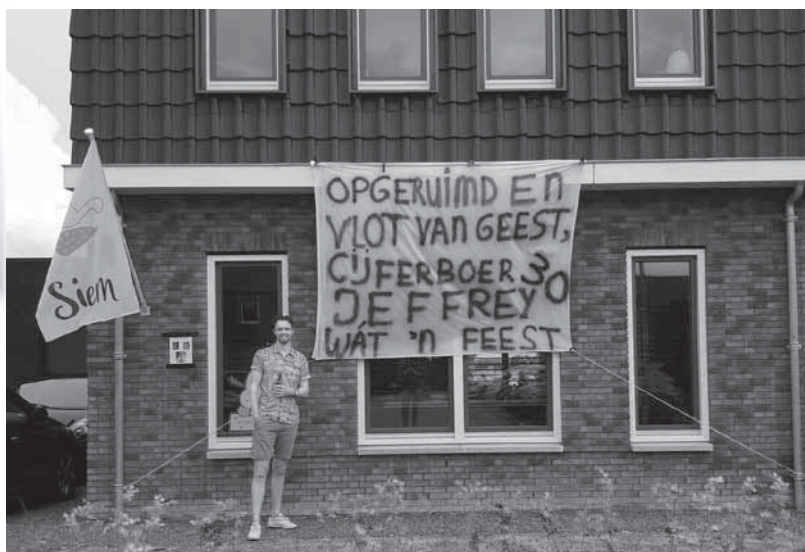 OPGERUIMD EN
VLOT VAN GEEST,
CIJFERBOER 30
JEFFREY
WÁT 'N FEEST
Siem